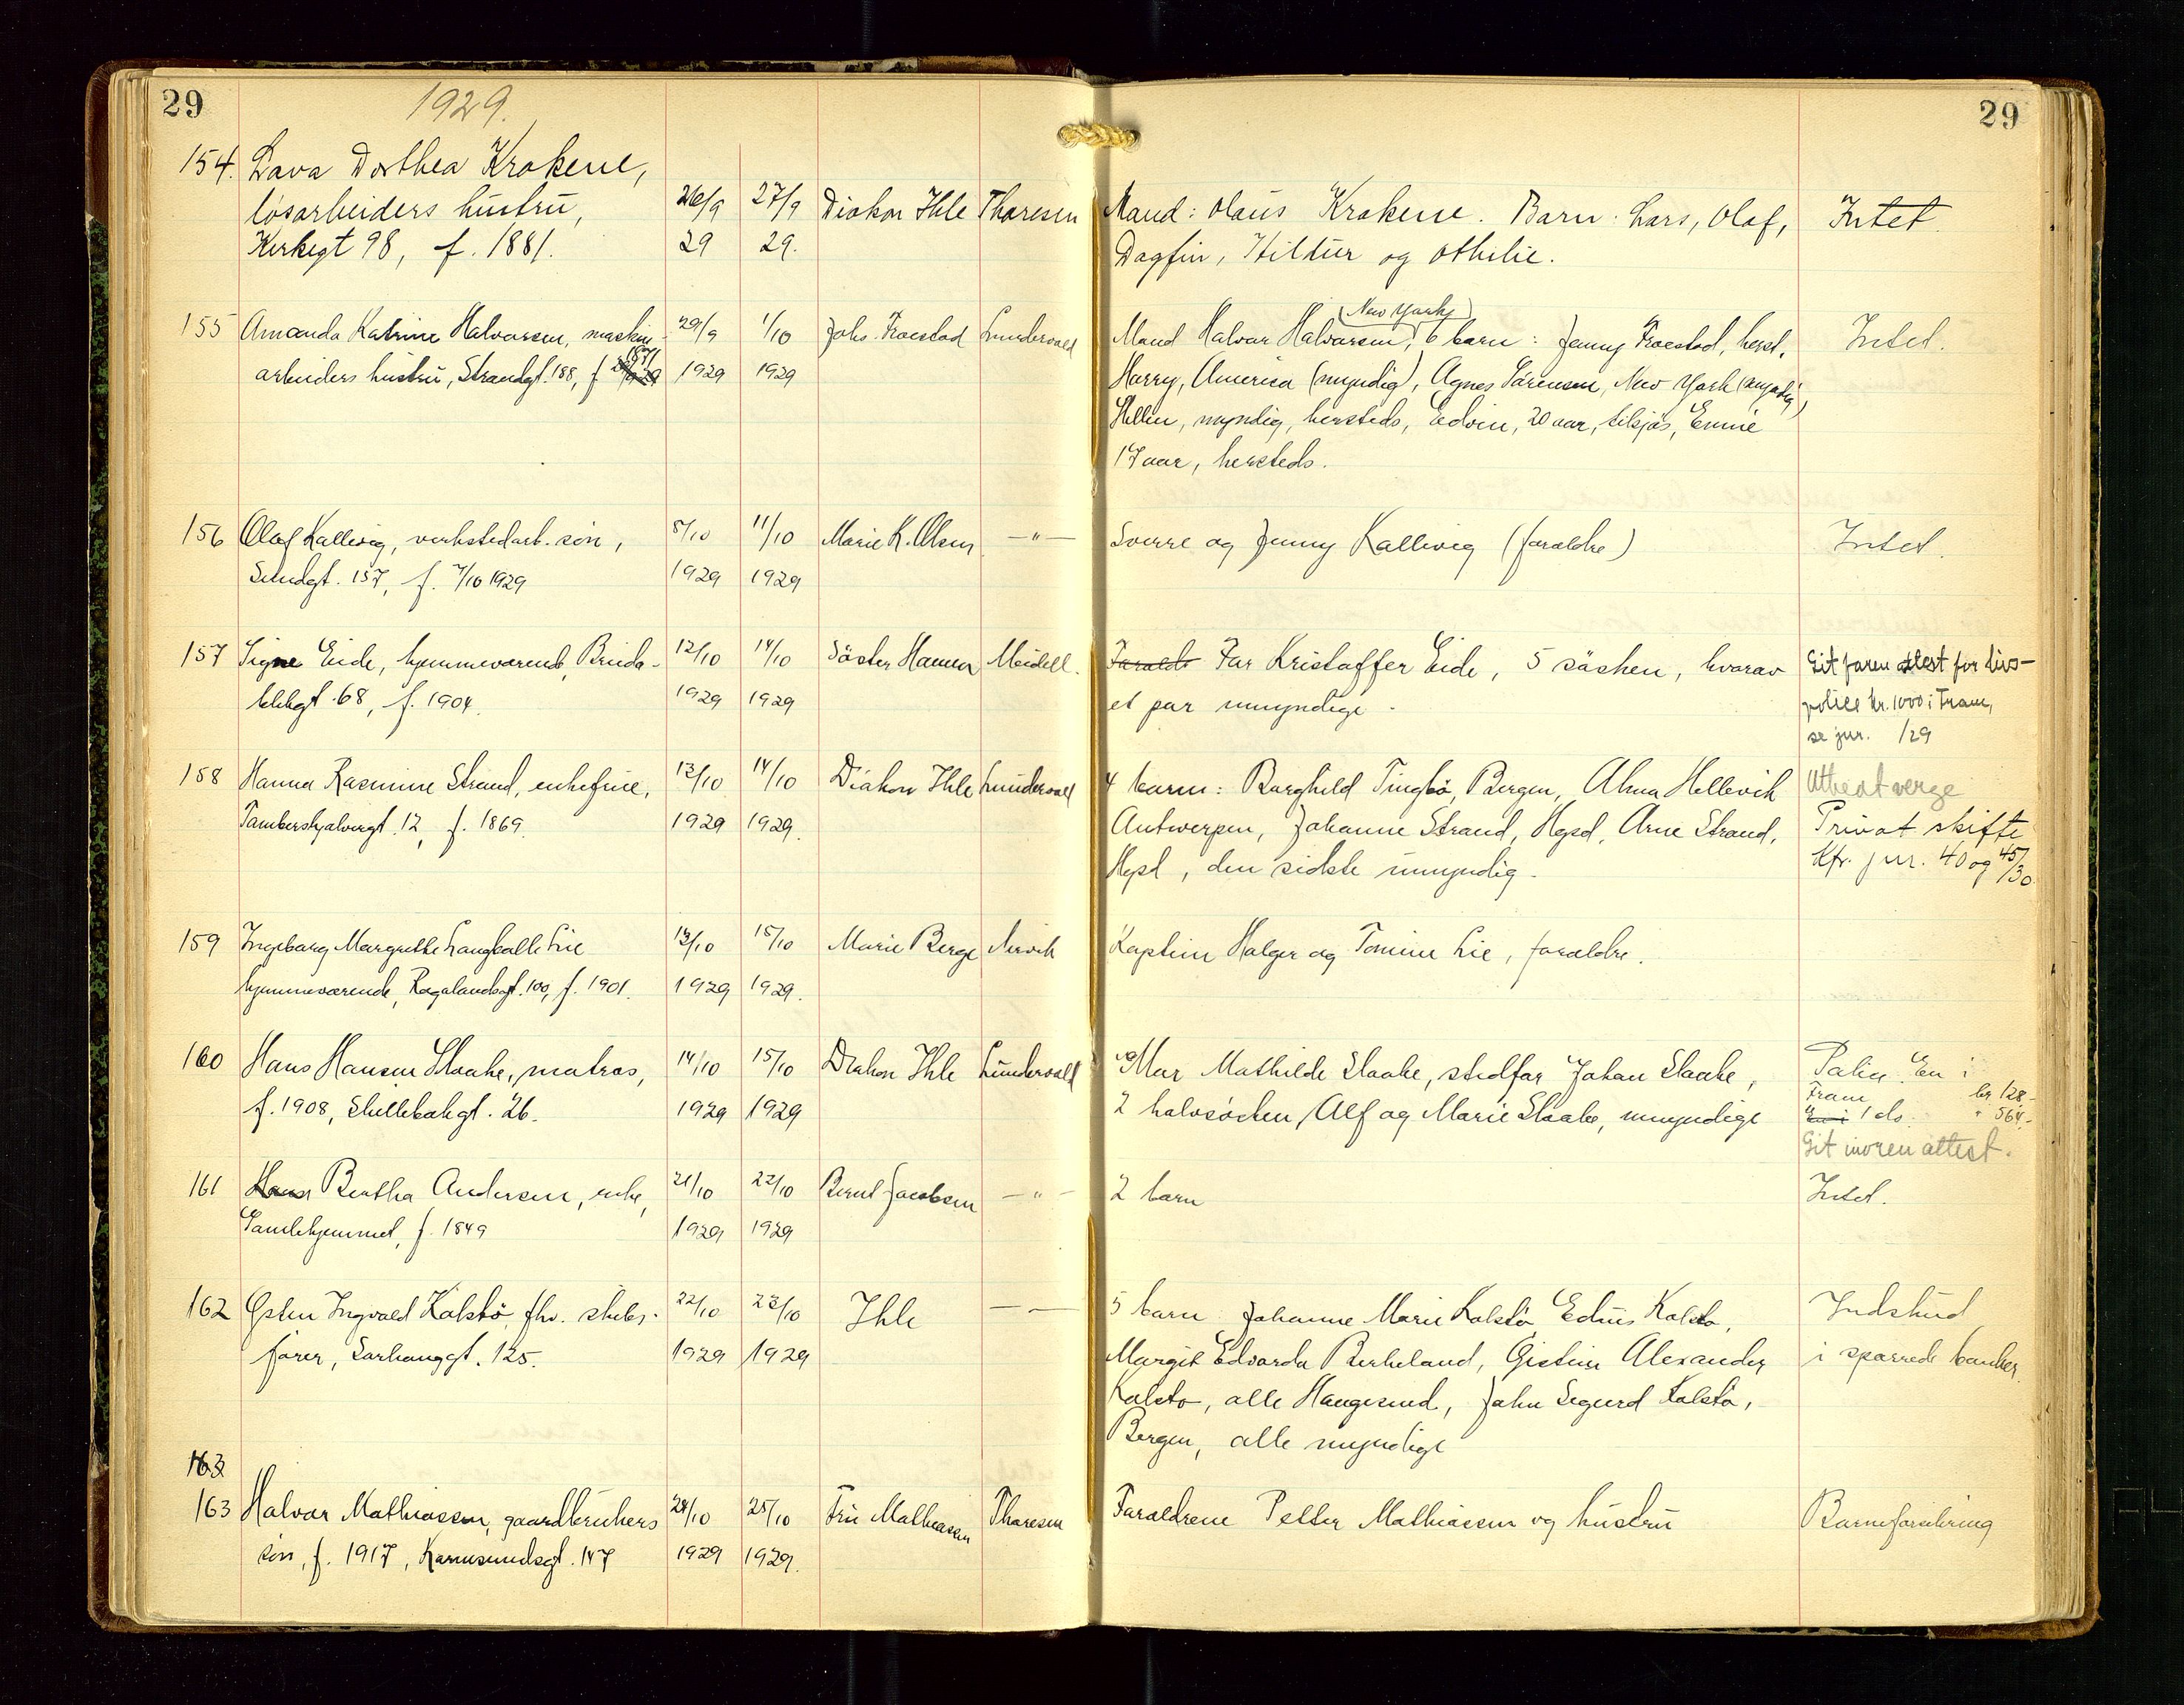 29
1929.
29
154. Lava Dorthea Krakene, løsarbeiders hustru, Kirkegt 98, f. 1881.
26/9 29
27/9 29.
Diakon Ihle
Thoresen
Mand: Olaus Krakene. Barn: Lars, Olaf,
Dagfin, Hildur og Othilie.
Intet.
155 Amanda Katrine Halvorsen, maskin-
arbeiders hustru, Strandgt. 188, f. 1871
29/9 1929
1/10 1929
Johs. Fraestad
Lundervold
Mand Halvor Halvorsen, (New York) 6 barn: Jenny Fraestad, herst.
Harry, America (myndig), Agnes Sørensen, New York (myndig)
Hellen, myndig, hersteds, Edvin, 20 aar, tilsjøs, Emmie
17 aar, hersteds.
Intet.
156 Olaf Kallevig, verkstedarb. søn,
Sundgt. 157, f. 7/10 1929
8/10 1929
11/10 1929
Marie K. Olsen
—"—
Sverre og Jenny Kallevig (forældre)
Intet.
157 Signe Eide, hjemmeværende, Breida-
blikgt. 68, f. 1904.
12/10 1929
14/10 1929
Søster Hanna
Meidell.
Foreldr Far Kristoffer Eide, 5 søsken, hvorav
et par umyndige.
Git faren attest for livs-
police kr. 1000 i Fram,
se jur. /29
158 Hanna Rasmine Strand, enkefrue,
Tamberskjelvergt. 12, f. 1869.
13/10 1929
14/10 1929.
Diakon Ihle
Lundervold
4 barn: Borghild Tingbø, Bergen, Alma Hellevik
Antwerpen, Johanne Strand, Hgsd, Arne Strand,
Hgsd, den sidste umyndig.
Utbedt verge
Privat skifte
Kfr. jur. 40 og 45/30
159 Ingeborg Margrethe Langballe Lie
hjemmeværende, Rogalandsgt. 100, f. 1901.
13/10 1929
15/10 1929.
Marie Berge
Nervik
Kaptein Holger og Tomine Lie, forældre.
160 Hans Hansen Slaake, matros,
f. 1908, Skillebækgt. 26.
14/10 1929
15/10 1929
Diakon Ihle
Lundervold
Mor Mathilde Slaake, stedfar Johan Slaake,
2 halvsøsken, Alf og Marie Slaake, umyndige
Police. En i
Fram kr 128.-
En i 1 do. " 564.-
Git moren attest.
161 Hans Bertha Andersen, enke,
Gamlehjemmet, f. 1849
21/10 1929
22/10 1929
Bernt Jacobsen
—"—
2 barn
Intet.
162 Østen Ingvald Kalstø, fhv. skibs-
fører, Sørhauggt. 125.
22/10 1929
23/10 1929
Ihle
— —
5 barn Johanne Marie Kalstø, Edvis Kalstø,
Margit Edvarda Birkeland, Gisten Alexander
Kalstø, alle Haugesund, John Sigurd Kalstø,
Bergen, alle myndige
Indskud
i sparrede banker.
163
163 Halvor Mathiassen, gaardbrukers
søn, f. 1917, Karmsundsgt. 147
24/10 1929
25/10 1929.
Fru Mathiassen
Thoresen
Forældrene Petter Mathiassen og hustru
Barneforsikring